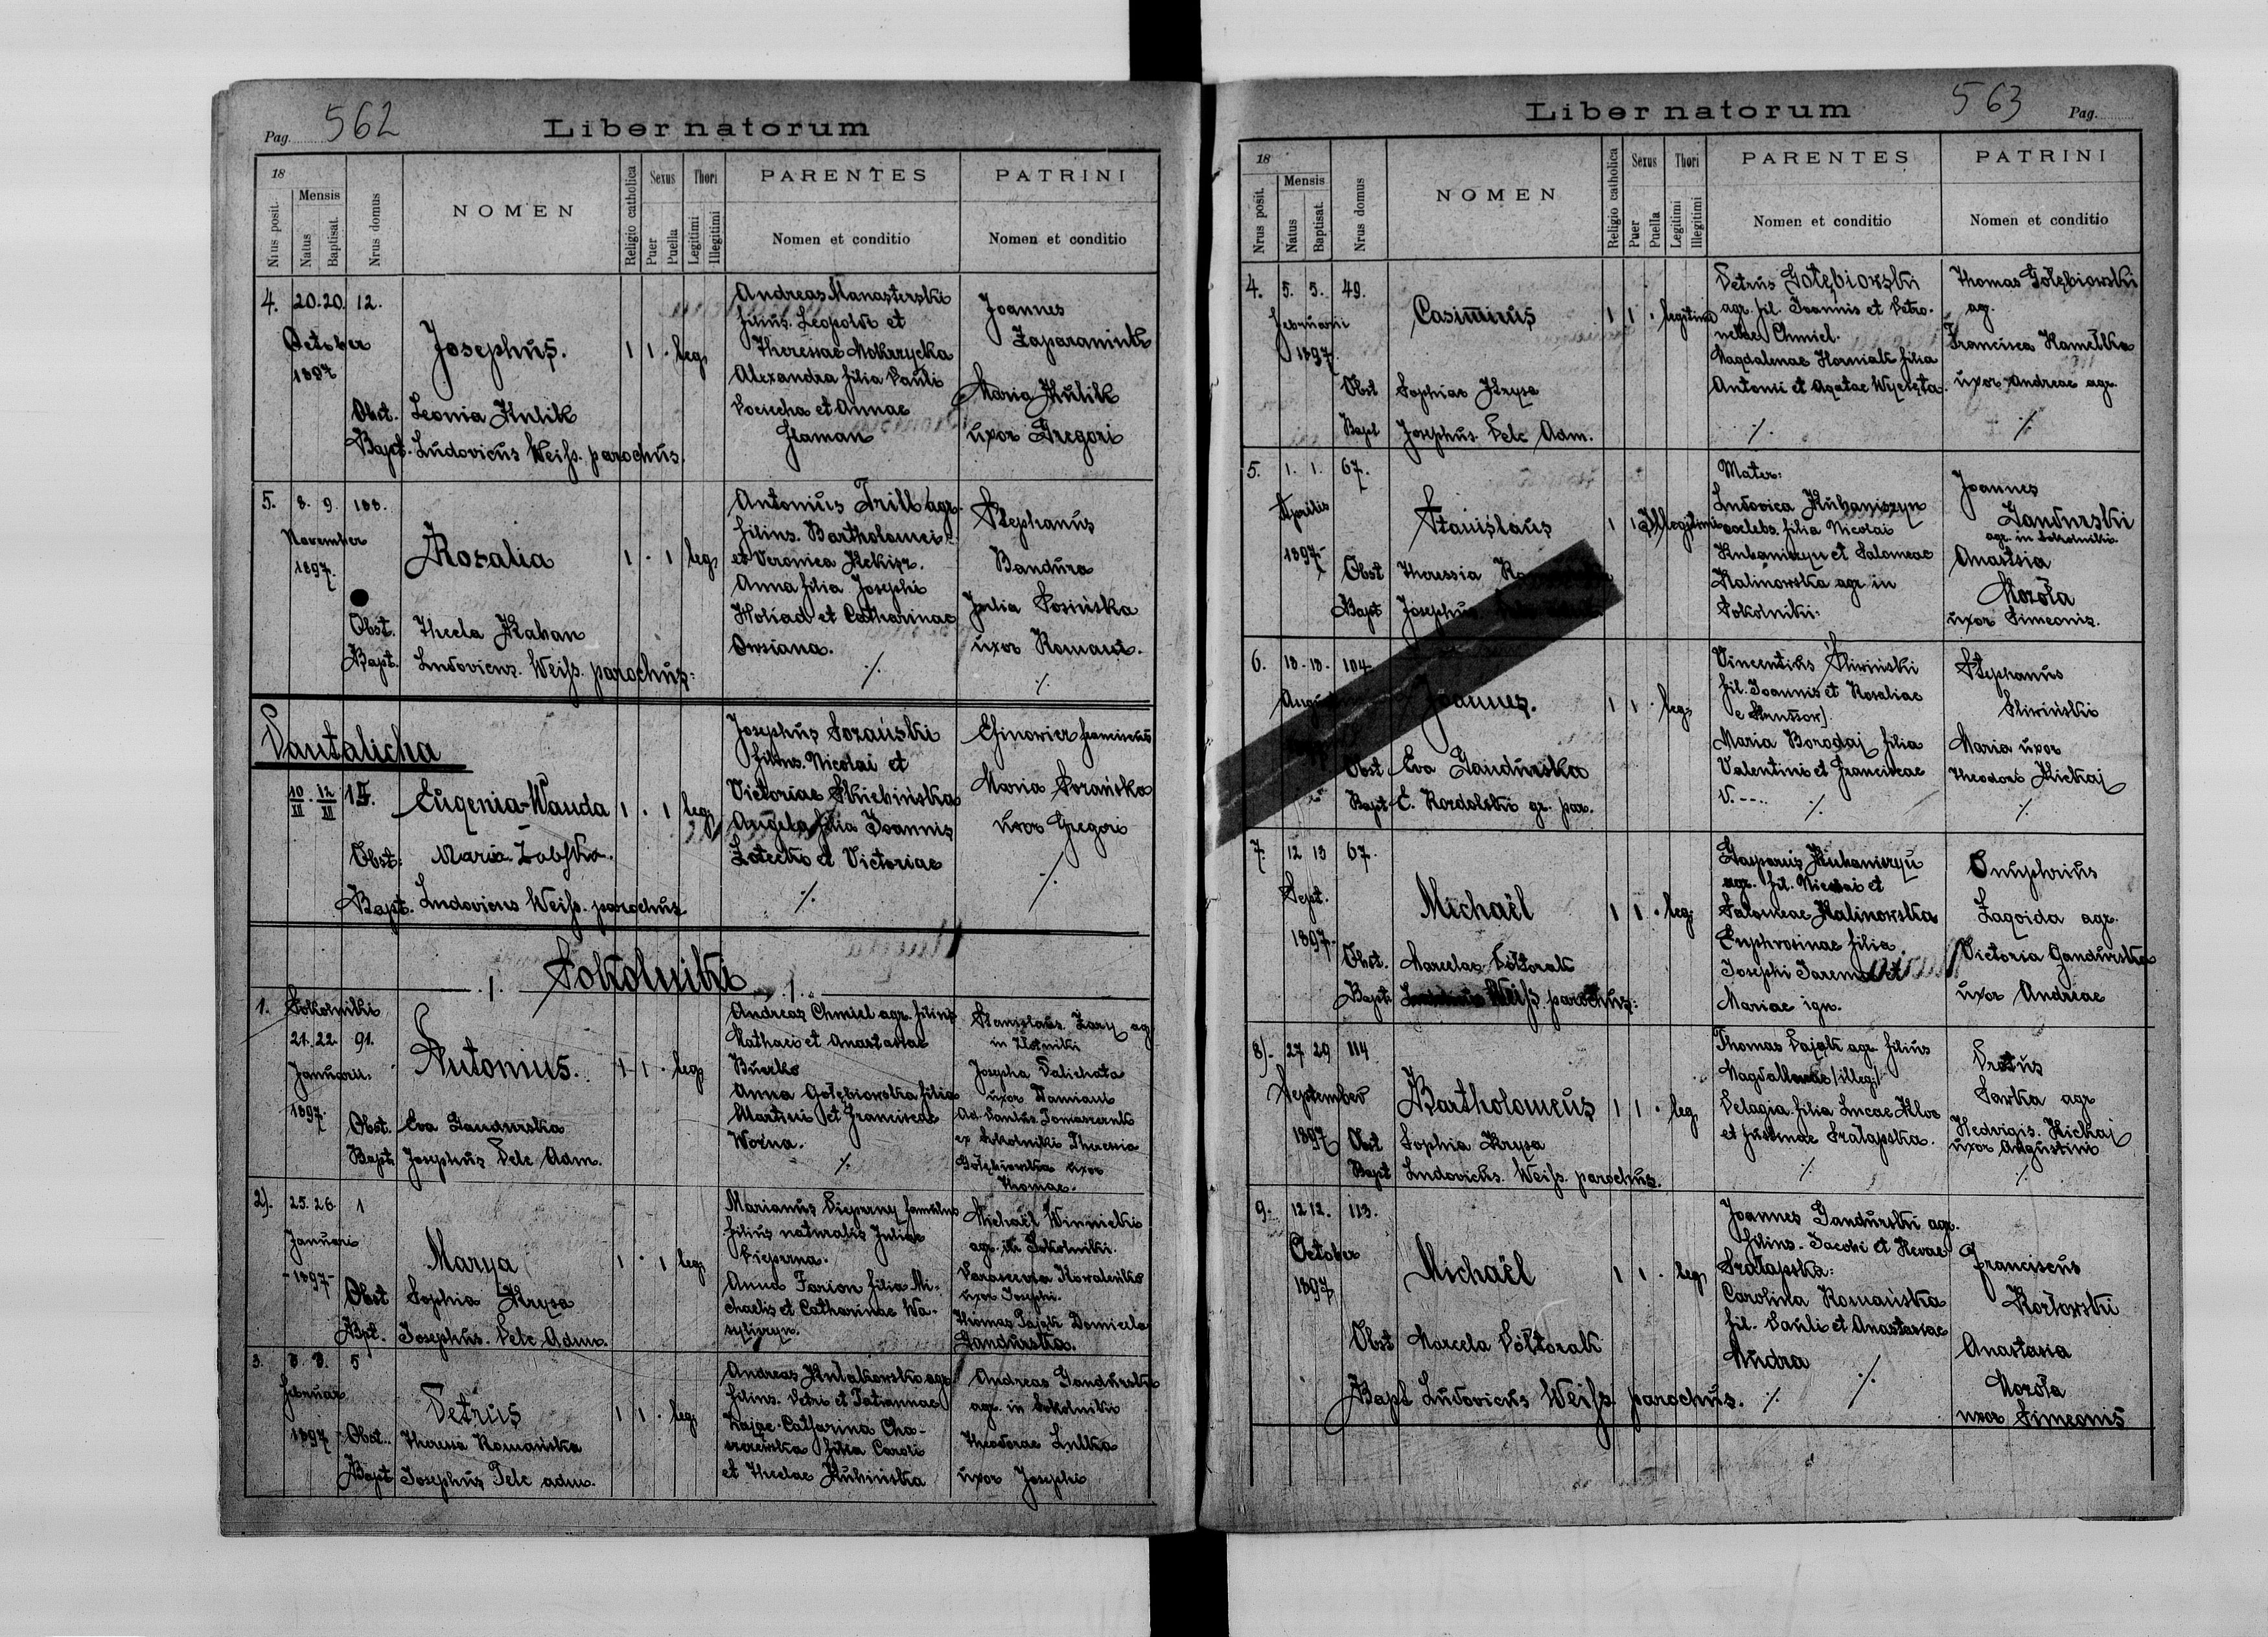 Pag. 562
Liber natorum
18
Nrus posit.
Mensis
Natus
Baptisat.
Nrus domus
NOMEN
Religio catholica
Sexus
Puer
Puella
Thori
Legitimi
Illegitimi
PARENTES
Nomen et conditio
PATRINI
Nomen et conditio
4. 20. 20. 12.
October
1897
Josephus.
1 1 . leg.
Obst. Leonia Kulik
Bapt. Ludovicus Weiss. parochus.
Andreas Manasterski
filius. Leopoldi et
Theressae Mokrzycka
Alexandra filia Pauli
Pociecha et Annae
Haman
Joannes
Zaparaniuk
Maria Kulik
uxor Gregori
5. 8. 9. 188.
November
1897.
Rosalia
1 . 1 leg.
Obst. Thecla Kahan
Bapt. Ludovicus. Weiss. parochus:
Antonius Trill agr.
filius. Bartholomei
et Veronica
Anna filia Josephi
Holiad et Catharinae
Owsiana. ./.
Stephanus
Bandura
Julia Sosińska
uxor Romani.
./.
Pantalicha
10/XI . 12/XI
Eugenia-Wanda
1 . 1 leg.
Obst: Maria
Bapt. Ludovicus Weiss. parochus
Josephus
filius. Nicolai et
Victoriae
Angela filia Joannis
et Victoriae
./.
franciscus
Maria
uxor Gregori
./.
Sokolniki
1. Sokolniki
21. 22. 91.
Januarii.
1897.
Antonius.
1 1 . leg.
Obst. Eva Gandurska
Bapt. Josephus Pelc Adm.
Andreas Chmiel agr. filius
Mathaei et Anastasiae
Anna Gołębiowska filia
Martini et Franciscae
Woźna.
./.
Stanislaus Zary agr
in Złotniki
Josepha Palichata
uxor Damiani
ex Sokolniki Theresia
Gołębiowska uxor
Thomae.
2). 25. 26. 1
Januari
1897
Marya
1 . 1 leg.
Obst Sophia Krysa
Bpt. Josephus. Pelc Adm.
Marianus famulus
filius naturalis Juliae
Anna Farion filia Mi-
chaelis et Catharinae Wa-
sylczyn.
Michaël Winnicki
agr. in Sokolniki.
Parascevia
uxor Josephi.
Thomas Pająk Domicela
Gandurska.
3. 8. 8. 5
Februar
1897
Petrus
1 1 . leg.
Obst. Theresia Romańska
Bapt Josephus Pelc adm.
Andreas agr
filius. Petri et Tatiannae
Catharina
filia Caroli
et Theclae Kubińska
Andreas Gandurski
agr. in Sokolniki
Theodora
uxor Josephi
Liber natorum
563 Pag.
18
Nrus posit.
Mensis
Natus
Baptisat.
Nrus domus
NOMEN
Religio catholica
Sexus
Puer
Puella
Thori
Legitimi
Illegitimi
PARENTES
Nomen et conditio
PATRINI
Nomen et conditio
4. 5. 5. 49.
Februarii
1897.
Casimirus
1 1 . legitimo
Obst Sophiae Krysa
Bapt Josephus. Pelc Adm.
Petrus Gołębiowski
agr. fil. Joannis et Petro-
nelae Chmiel.
Magdalenae Horniak filia
Antoni et Agatae Wycięta.
./.
Thomas Gołębiowski
ag.
Francisca
uxor Andreae agr.
./.
5. 1. 1. 67.
Aprilis
1897
Stanislaus
1 1 Illegitimi
Obst Theressia
Bapt Josephus
Mater:
Ludovica Kubaniszyn
coelebs. filia Nicolai
Kubaniszyn et Salomeae
Kalinowska agr in
Sokolniki.
Joannes
Gandurski
agr. in Sokolniki.
Anastsia
Mozoła
uxor Simeonis.
6. 18. 18. 104
Joannes.
1 1 . leg.
Obst Eva Gandurska
Bapt gr. par.
Vincentius Śliwiński
fil. Joannis et Rosaliae
Maria Borodaj filia
Valentini et Franciscae
V.---. ./.
Stephanus
Śliwiński
Maria uxor
Theodori Kickaj
./.
7. 12 13 67.
Sept.
1897
Michaël
1 1 . leg.
Obst. Marcelae Półtorak
Bapt. Weiss. parochus:
Kubaniszyn
agr. fil. Nicolai et
Salomeae Kalinowska
Euphrosinae filia
Josephi et
Mariae ign.
Onuphrius
Zagoida agr.
Victoria Gandurska
uxor Andreae
8). 27 29 114
September
1897
Bartholomeus
1 1 . leg.
Obst Sophia Krysa
Bapt Ludovicus. Weiss. parochus.
Thomas Pająk agr filius
Magdalenae /illeg./
Pelagia filia Lucae
et Justinae
./.
agr
Hedvigis. Kickaj
uxor Augustini
./.
9. 12 12. 113.
October
1897
Michaël
1 1 . leg.
Obst Marcela Półtorak
Bapt Ludovicus Weiss parochus. ./.
Joannes Gandurski agr.
filius. Jacobi et
Carolina Romańska
fil. Pauli et Anastasiae
Mudra ./.
Franciscus
Kozłowski
Anastasia
Mozoła
uxor Simeonis